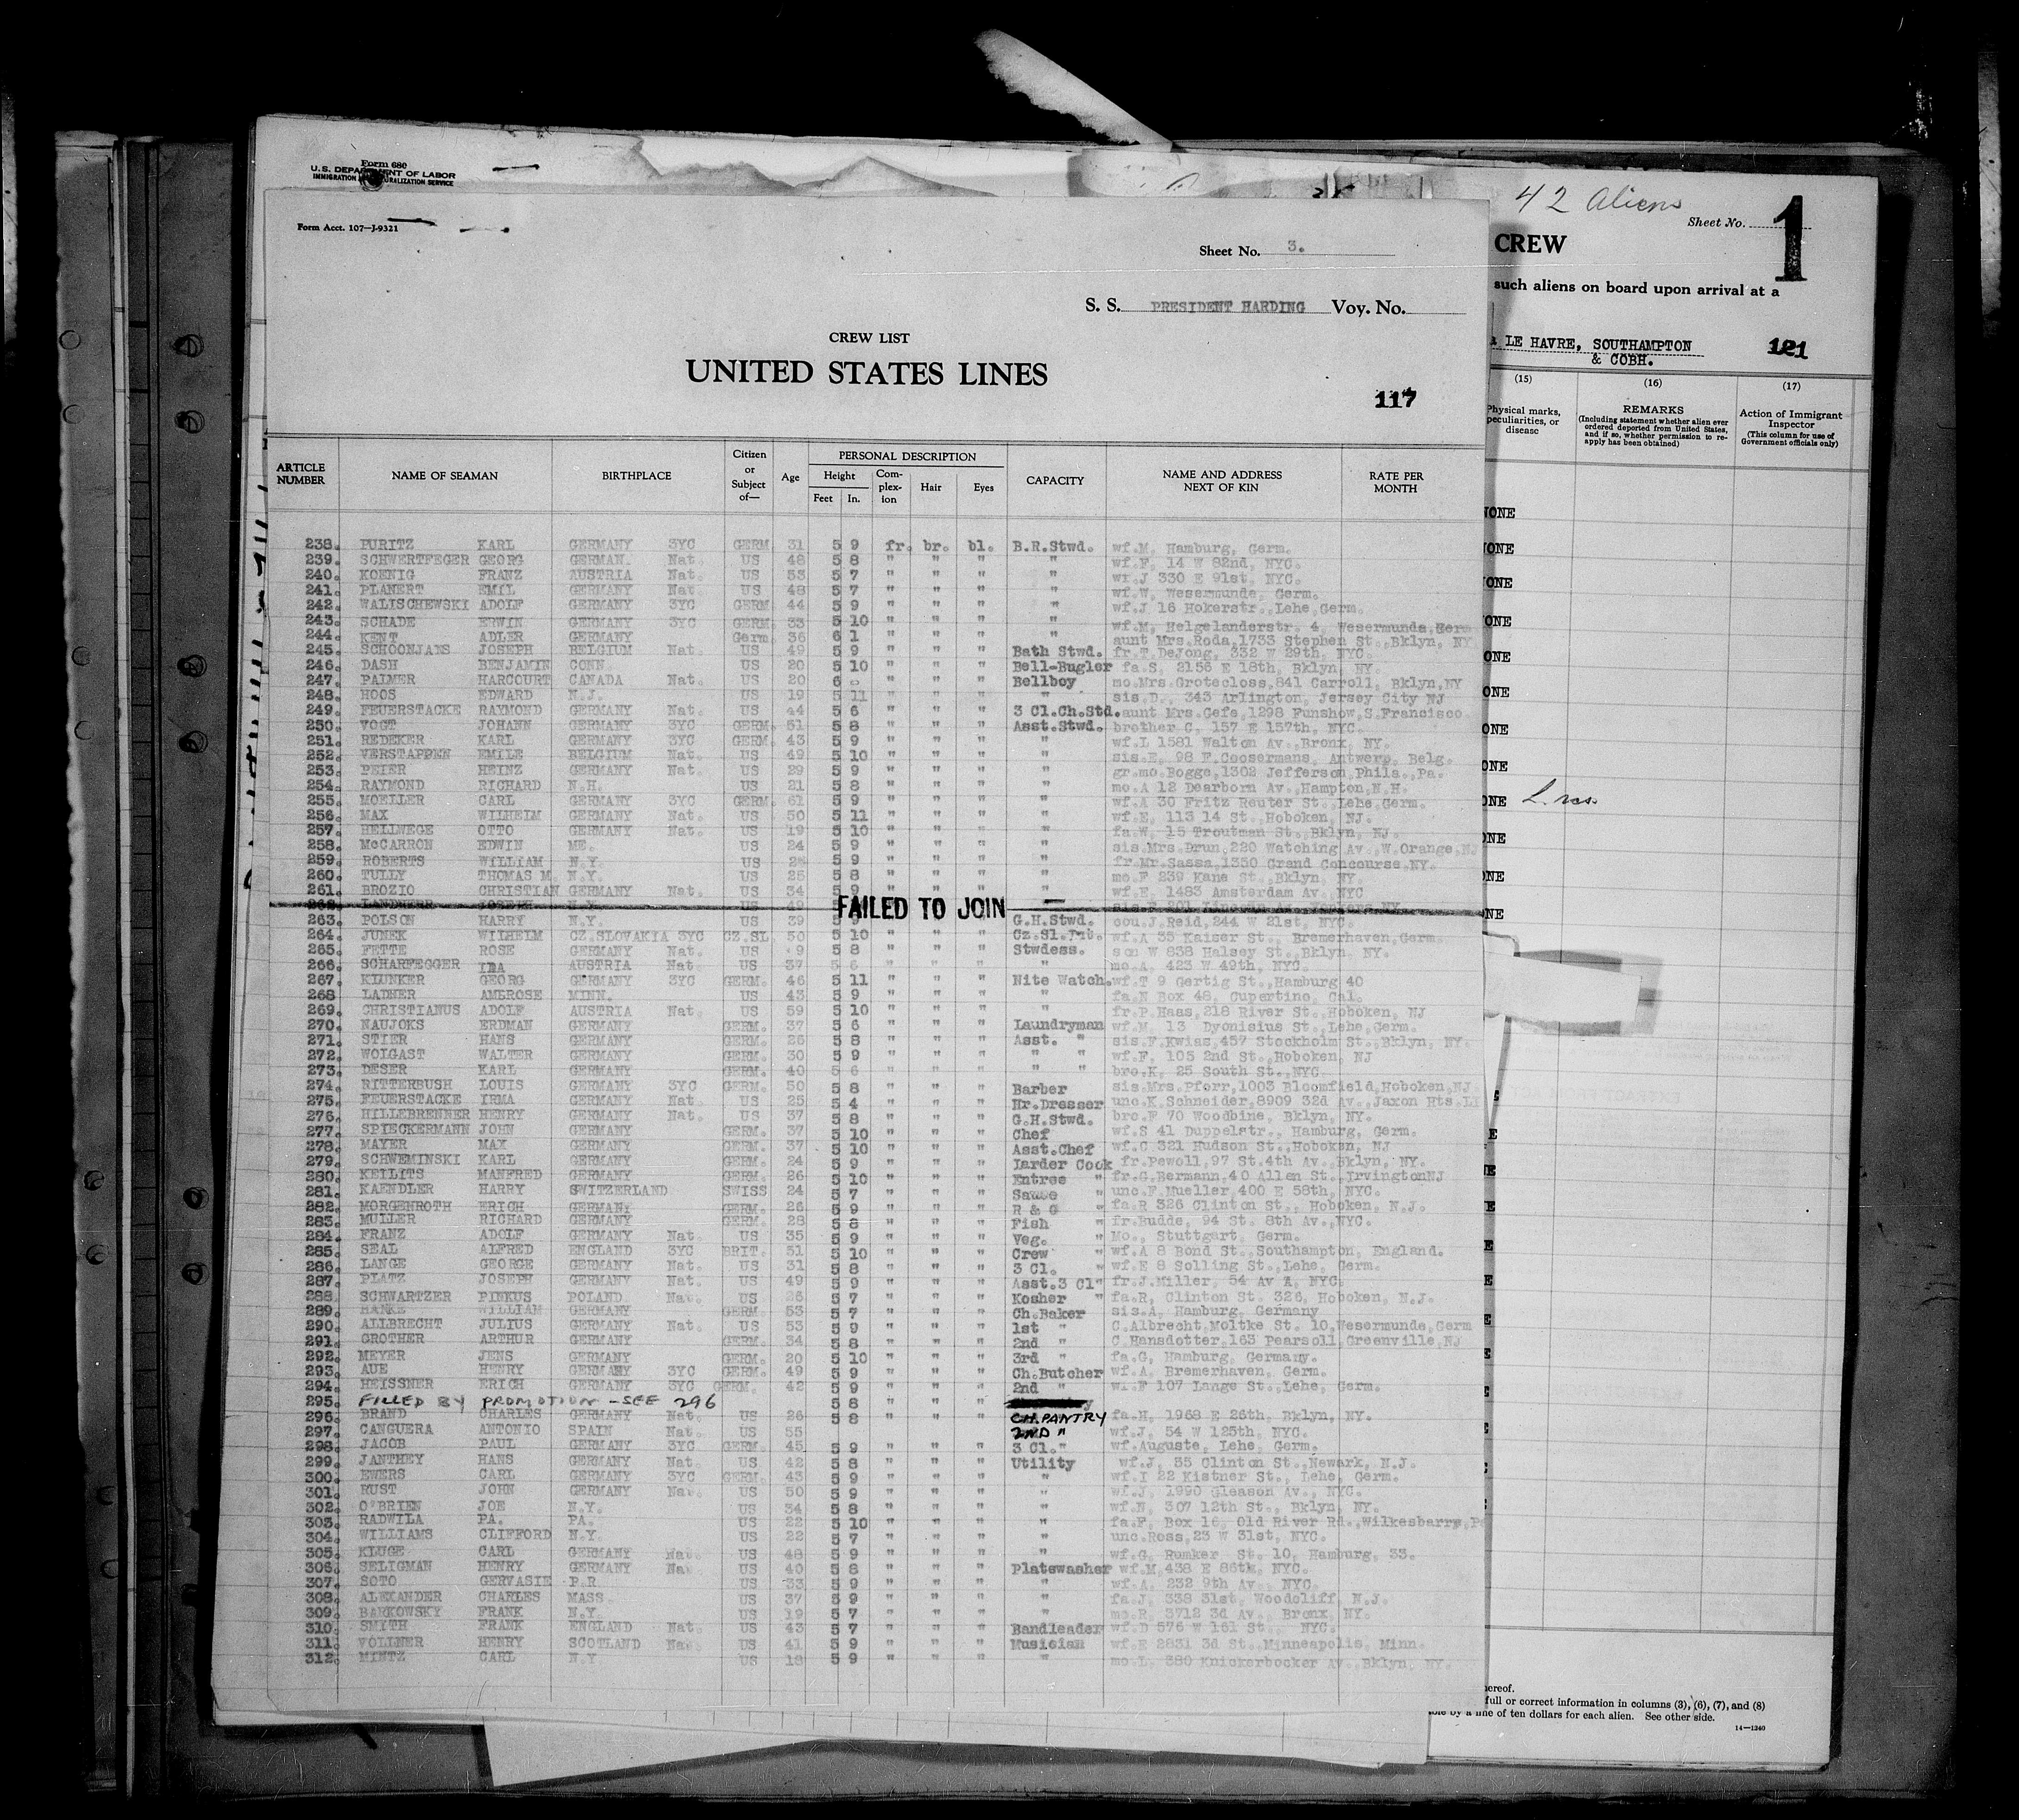 Form 680
U.S. DEPARTMENT OF LABOR
IMMIGRATION NATURALIZATION SERVICE
Form Acct. 107—J-9321
Sheet No. 3.
S. S. PRESIDENT HARDING Voy. No.
CREW LIST
UNITED STATES LINES
117
ARTICLE NUMBER NAME OF SEAMAN BIRTHPLACE Citizen or Subject of— Age PERSONAL DESCRIPTION Height Feet In. Complexion Hair Eyes CAPACITY NAME AND ADDRESS NEXT OF KIN RATE PER MONTH
238. PURITZ KARL GERMANY 3YC GERM 31 5 9 fr. br. bl. B.R.Stwd. wf.M, Hamburg, Germ.
239. SCHWERTFEGER GEORG GERMAN. Nat. US 48 5 8 " " " " wf.F, 14 W 82nd, NYC.
240. KOENIG FRANZ AUSTRIA Nat. US 53 5 7 " " " " wf.J 330 E 91st, NYC.
241. PLANERT EMIL GERMANY Nat. US 48 5 7 " " " " wf.W, Wesermunde, Germ.
242. WALISCHEWSKI ADOLF GERMANY 3YC GERM. 44 5 9 " " " " wf.J 16 Hokerstr., Lehe, Germ.
243. SCHADE ERWIN GERMANY 3YC GERM. 33 5 10 " " " " wf.M, Helgelanderstr. 4, Wesermunde, Germ
244. KENT ADLER GERMANY Germ. 36 6 1 " " " " aunt Mrs.Roda,1733 Stephen St., Bklyn, NY
245. SCHOONJANS JOSEPH BELGIUM Nat. US 49 5 9 " " " Bath Stwd. fr.T.DeJong, 332 W 29th, NYC.
246. DASH BENJAMIN CONN. US 20 5 10 " " " Bell-Bugler fa.S, 2156 E 18th, Bklyn, NY.
247. PALMER HARCOURT CANADA Nat. US 20 6 - " " " Bellboy mo.Mrs.Grotecloss,841 Carroll, Bklyn,NY
248. HOOS EDWARD N.J. US 19 5 11 " " " " sis.D., 343 Arlington, Jersey City NJ
249. FEUERSTACKE RAYMOND GERMANY Nat. US 44 5 6 " " " 3 Cl.Ch.Std. aunt Mrs.Gefe,1298 Funshow,S.Francisco
250. VOGT JOHANN GERMANY 3YC GERM. 51 5 8 " " " Asst.Stwd. brother C, 157 E 157th, NYC.
251. REDEKER KARL GERMANY 3YC GERM. 43 5 9 " " " " wf.L 1581 Walton Av., Bronx, NY.
252. VERSTAPPEN EMILE BELGIUM Nat. US 49 5 10 " " " " sis.E, 98 F.Coosermans, Antwerp, Belg.
253. PEIER HEINZ GERMANY Nat. US 29 5 9 " " " " gr.mo.Bogge,1302 Jefferson,Phila.,Pa.
254. RAYMOND RICHARD N.H. US 21 5 8 " " " " mo.A 12 Dearborn Av.,Hampton,N.H.
255. MOELLER CARL GERMANY 3YC GERM. 61 5 9 " " " " wf.A 30 Fritz Reuter St., Lehe,Germ.
256. MAX WILHELM GERMANY Nat. US 50 5 11 " " " " wf.E, 113 14 St.,Hoboken, NJ.
257. HELLWEGE OTTO GERMANY Nat. US 19 5 10 " " " " fa.W, 15 Troutman St.,Bklyn, NJ.
258. McCARRON EDWIN ME. US 24 5 9 " " " " sis.Mrs.Drun,220 Watching Av.,W.Orange,NJ
259. ROBERTS WILLIAM N.Y. US 5 9 " " " " fr.Mr.Sassa,1350 Grand Concourse,NY.
260. TULLY THOMAS M. N.Y. US 25 5 8 " " " " mo.F 239 Kane St.,Bklyn, NY.
261. BROZIO CHRISTIAN GERMANY Nat. US 34 5 9 " " " " wf.E, 1483 Amsterdam Av, NYC
262. LANDHERR JOSEPH N.Y. US 49 FAILED TO JOIN sis.F 201 Lincoln Av, Yonkers,NY.
263. POLSON HARRY N.Y. US 39 G.H.Stwd. cou.J.Reid,244 W 21st, NYC.
264. JUNEK WILHELM CZ.SLOVAKIA 3YC CZ.SL 50 5 10 " " " Cz.Sl. wf.A 35 Kaiser St., Bremerhaven,Germ.
265. FETTE ROSE GERMANY Nat. US 9 5 8 " " " Stwdess. son W 838 Halsey St.,Bklyn, NY.
266. SCHARFEGGER IDA AUSTRIA Nat. US 37 5 6 " " " " mo.A, 423 W 49th, NYC.
267. KLUNKER GEORG GERMANY 3YC GERM. 46 5 11 " " " Nite Watch. wf.T 9 Gertig St.,Hamburg 40
268 LADNER AMBROSE MINN. US 43 5 9 " " " " fa.N Box 48, Cupertino, Cal.
269. CHRISTIANUS ADOLF AUSTRIA Nat. US 59 5 10 " " " " fr.P.Haas,218 River St.,Hoboken, NJ
270. NAUJOKS ERDMAN GERMANY GERM. 37 5 6 " " " Laundryman wf.M, 13 Dyonisius St.,Lehe,Germ.
271. STIER HANS GERMANY GERM. 26 5 8 " " " Asst. " sis.F.Kwias,457 Stockholm St.,Bklyn, NY.
272. WOLGAST WALTER GERMANY GERM. 30 5 9 " " " " " wf.F, 105 2nd St.,Hoboken, NJ
273. DESER KARL GERMANY GERM. 40 5 6 " " " " " bro.K, 25 South St.,NYC.
274. RITTERBUSH LOUIS GERMANY 3YC GERM. 50 5 8 " " " Barber sis.Mrs.Pforr,1003 Bloomfield,Hoboken,NJ.
275. FEUERSTACKE IRMA GERMANY Nat. US 25 5 4 " " " Hr.Dresser unc.K.Schneider,8909 32d Av., Jaxon Hts.LI
276. HILLEBRENNER HENRY GERMANY Nat. US 37 5 8 " " " G.H.Stwd. bro.F 70 Woodbine, Bklyn, NY.
277. SPIECKERMANN JOHN GERMANY GERM. 37 5 10 " " " Chef wf.S 41 Duppelstr., Hamburg, Germ.
278. MAYER MAX GERMANY GERM. 37 5 10 " " " Asst.Chef wf.C 321 Hudson St.,Hoboken, NJ
279. SCHWEMINSKI KARL GERMANY GERM. 24 5 9 " " " Larder Cook fr.Pewoll,97 St.4th Av.,Bklyn, NY.
280. KEILITS MANFRED GERMANY GERM. 26 5 10 " " " Entree " fr.G.Bermann,40 Allen St.,IrvingtonNJ
281. KAENDLER HARRY SWITZERLAND SWISS 24 5 7 " " " Sauce " unc.F.Mueller,400 E 58th, NYC.
282. MORGENROTH ERICH GERMANY GERM. 26 5 9 " " " R & G " fa.R 326 Clinton St., Hoboken, N.J.
283. MULLER RICHARD GERMANY GERM. 28 5 8 " " " Fish " fr.Budde, 94 St. 8th Av.,NYC.
284. FRANZ ADOLF GERMANY Nat. US 35 5 9 " " " Veg. " Mo., Stuttgart, Germ.
285. SEAL ALFRED ENGLAND 3YC BRIT. 51 5 10 " " " Crew " wf.A 8 Bond St.,Southampton, England.
286. LANGE GEORGE GERMANY Nat. US 31 5 8 " " " 3 Cl. " wf.E 8 Solling St.,Lehe, Germ.
287. PLATZ JOSEPH GERMANY Nat. US 49 5 9 " " " Asst.3 Cl" fr.J.Miller, 54 Av A, NYC.
288. SCHWARTZER PINKUS POLAND Nat. US 26 5 7 " " " Kosher " fa.R, Clinton St. 326, Hoboken, N.J.
289. HANKE WILLIAM GERMANY GERM. 53 5 7 " " " Ch.Baker sis.A, Hamburg, Germany
290. ALLBRECHT JULIUS GERMANY Nat. US 53 5 9 " " " 1st " C.Albrecht,Moltke St. 10,Wesermunde,Germ
291. GROTHER ARTHUR GERMANY GERM. 34 5 8 " " " 2nd " C.Hansdotter,163 Pearsoll,Greenville,NJ
292. MEYER JENS GERMANY GERM. 20 5 10 " " " 3rd " fa.G, Hamburg, Germany.
293. AUE HENRY GERMANY 3YC GERM. 49 5 9 " " " Ch.Butcher wf.A, Bremerhaven, Germ.
294. HEISSNER ERICH GERMANY 3YC GERM. 42 5 9 " " " 2nd " wf.F 107 Lange St.,Lehe, Germ.
295. FILLED BY PROMOTION - SEE 296 5 8 " " "
296. BRAND CHARLES GERMANY Nat. US 26 5 8 " " " CH.PANTRY fa.H, 1968 E 26th, Bklyn, NY.
297. CANGUERA ANTONIO SPAIN Nat. US 55 2ND " wf.J, 54 W 125th, NYC.
298. JACOB PAUL GERMANY 3YC GERM. 45 5 9 " " " 3 Cl." wf.Auguste, Lehe, Germ.
299. JANTHEY HANS GERMANY Nat. US 42 5 8 " " " Utility wf.J, 35 Clinton St.,Newark, N.J.
300. EWERS CARL GERMANY 3YC GERM. 43 5 9 " " " " wf.I 22 Kistner St., Lehe, Germ.
301. RUST JOHN GERMANY Nat. US 50 5 9 " " " " wf.J, 1990 Gleason Av., NYC.
302. O'BRIEN JOE N.Y. US 34 5 8 " " " " wf.N, 307 12th St., Bklyn, NY.
303. RADWILA PA. PA. US 22 5 10 " " " " fa.F, Box 16, Old River Rd.,Wilkesbarre,Pa
304. WILLIAMS CLIFFORD N.Y. US 22 5 7 " " " " unc.Ross,23 W 31st, NYC.
305. KLUGE CARL GERMANY Nat. US 48 5 9 " " " " wf.G, Rumker St. 10, Hamburg, 33.
306. SELIGMAN HENRY GERMANY Nat US 40 5 8 " " " Platewasher wf.M,438 E 86th, NYC.
307. SOTO GERVASIE P.R. US 33 5 9 " " " " wf.A, 232 9th Av., NYC.
308. ALEXANDER CHARLES MASS. US 37 5 9 " " " " fa.J, 338 31st, Woodcliff, N.J.
309. BARKOWSKY FRANK N.Y. US 19 5 7 " " " " mo.R, 3712 3d Av., Bronx, NY.
310. SMITH FRANK ENGLAND Nat. US 43 5 7 " " " Bandleader wf.D 576 W 161 St., NYC.
311. VOLLNER HENRY SCOTLAND Nat. US 41 5 9 " " " Musician wf.E 2831 3d St.,Minneapolis, Minn.
312. MINTZ CARL N.Y US 18 5 9 " " " " mo.L, 380 Knickerbocker Av.,Bklyn, NY.
42 Aliens
Sheet No. 1
CREW
such aliens on board upon arrival at a
LE HAVRE, SOUTHAMPTON
& COBH.
121
(15) (16) (17)
Physical marks, peculiarities, or disease
REMARKS
(Including statement whether alien ever ordered deported from United States, and if so, whether permission to reapply has been obtained)
Action of Immigrant Inspector
(This column for use of Government officials only)
hereof.
full or correct information in columns (3), (6), (7), and (8)
by a fine of ten dollars for each alien. See other side.
14—1240